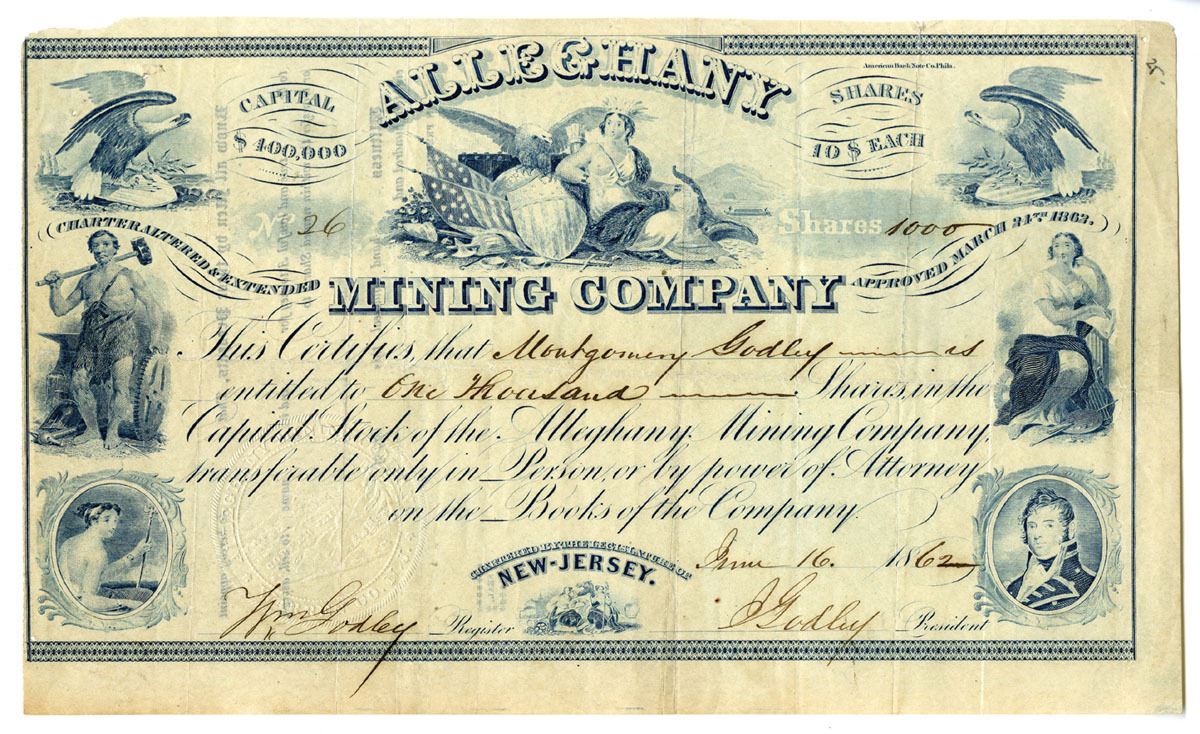 American Bank Note Co. Phila.
25
ALLEGHANY
CAPITAL
$ 400,000
SHARES
10 $ EACH
No 26
Shares 1000
CHARTER ALTERED & EXTENDED
APPROVED MARCH 24TH 1862.
MINING COMPANY
This Certifies, that Montgomery Godley is
entitled to One Thousand Shares, in the
Capital Stock of the Alleghany Mining Company,
transferable only in Person, or by power of Attorney
on the Books of the Company.
CHARTERED BY THE LEGISLATURE OF
NEW-JERSEY.
June 16. 1862
Wm Godley Register
J Godley President